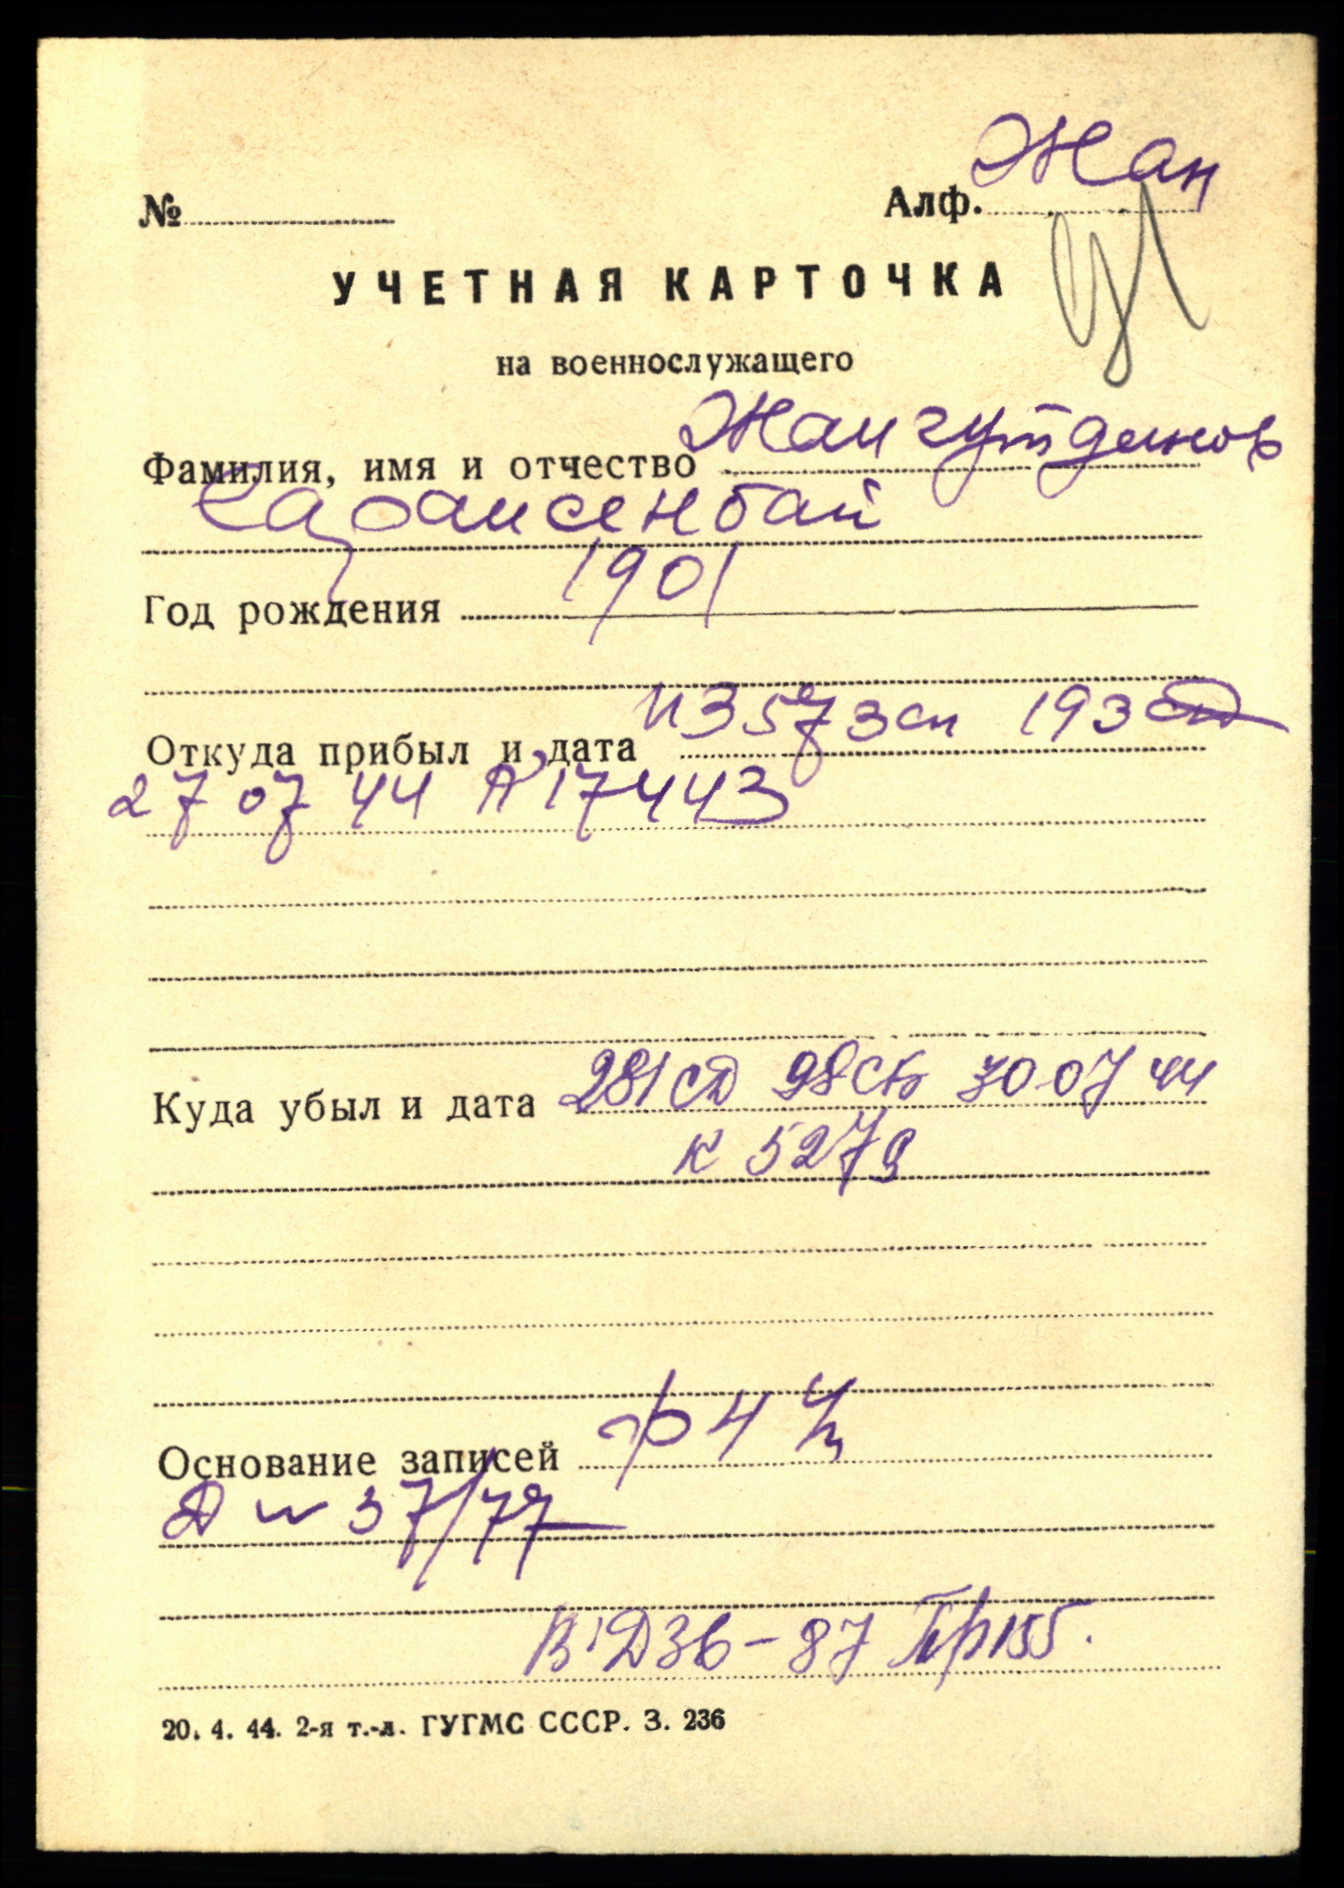 №
Алф. Жан
УЧЕТНАЯ КАРТОЧКА
на военнослужащего
Фамилия, имя и отчество Жангутдинов
Сарансенбай
Год рождения 1901
Откуда прибыл и дата из 573 сп 193 сд
27 07 44 17443
Куда убыл и дата 281 сд 98 сб 30 07 44
к 5279
Основание записей ф 4
Д 37/77
Д 36-87 Пр 155.
20. 4. 44. 2-я т.-л. ГУГМС СССР. З. 236